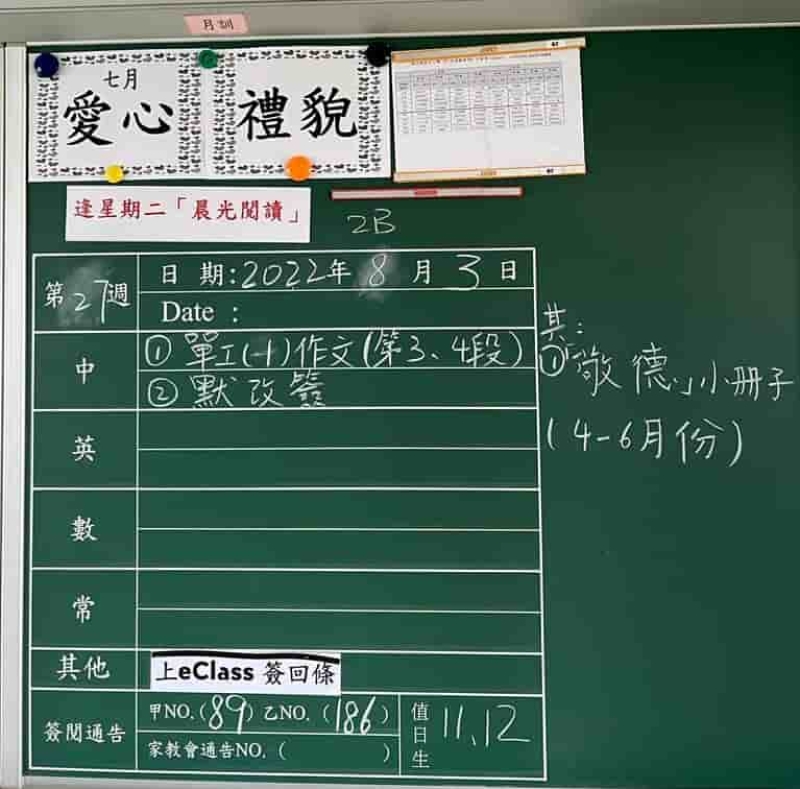 月訓
七月
愛心
禮貌
逢星期二「晨光閱讀」
2B
第27週
日期:2022年8月3日
Date :
中
① 單工(一)作文(第3、4段)
② 默改簽
英
數
常
其他
上eClass 簽回條
簽閱通告
甲NO.(89) 乙NO.(186)
家教會通告NO.( )
值日生
11、12
其:
①「敬德」小冊子
(4-6月份)